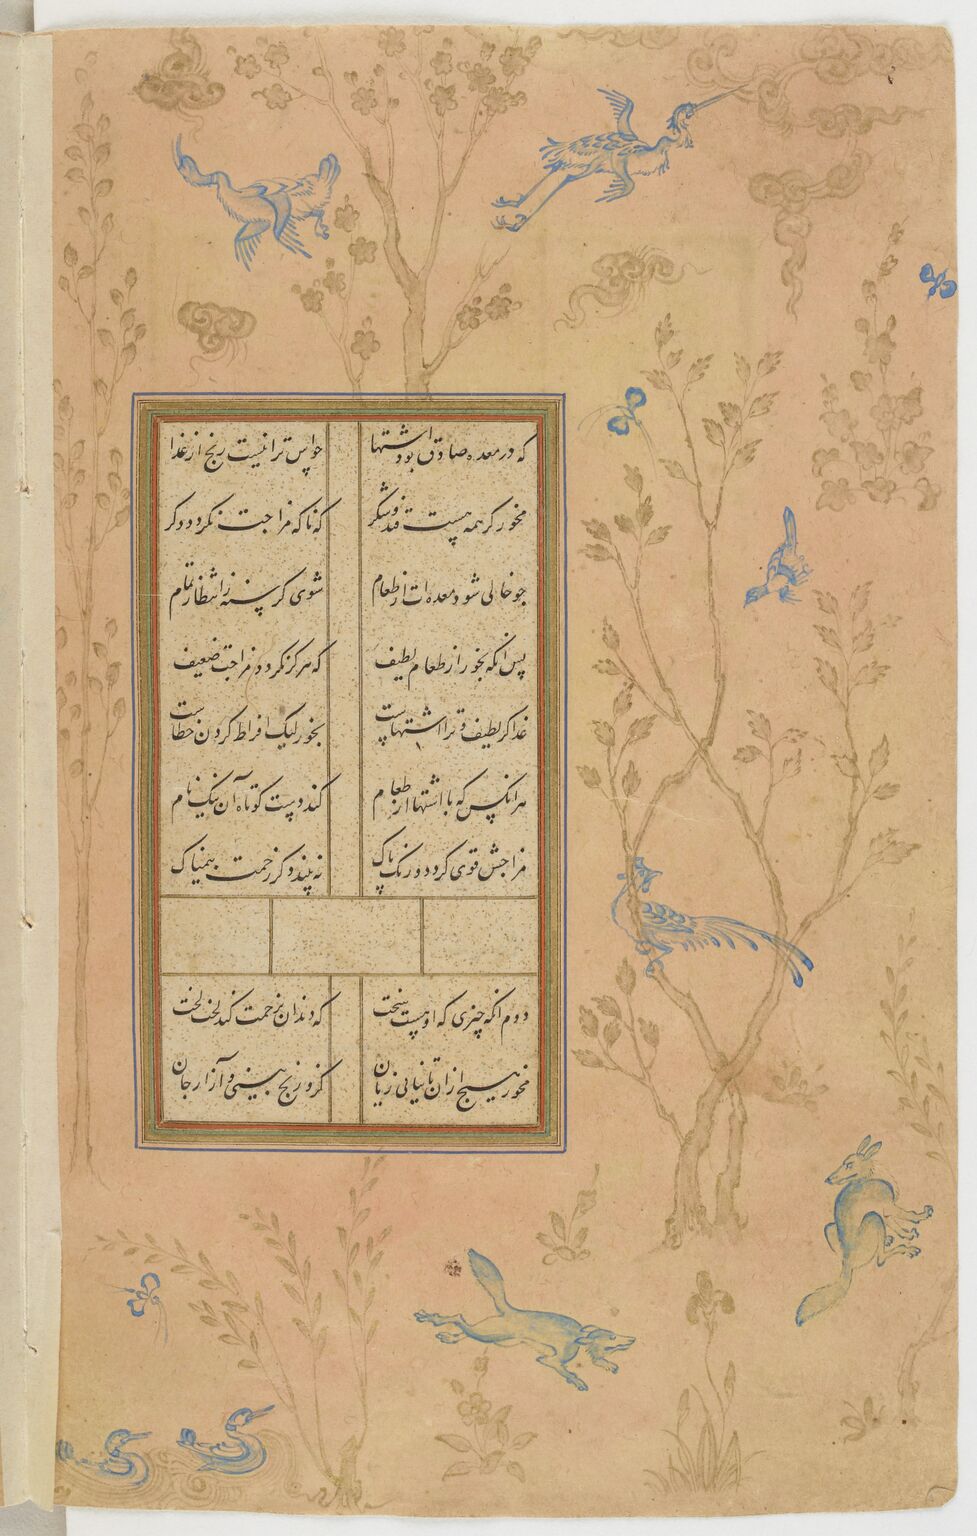 که در معده صادق بود اشتها چو این ترا نیست رنج از غذا
مخور کر همه هست قند و شکر که ناکه مزاجت نکردد دکر
چو خالی شود معده ات از طعام شوی کرسنه زانتظار تمام
پس انکه بخور از طعام لطیف که هرکز نکردد مزاجت ضعیف
غذا کر لطیف و ترا اشتهاست بخور لیک افراط کردن خطاست
هر انکس که با اشتها از طعام کند دست کوتاه آن نیک نام
مزاجش قوی کردد و رنک پاک نه بیند دکر زحمت بیمناک
دوم انکه چیزی که او هست سخت که دندان بزحمت کند لخت لخت
مخور هیچ ازان تا نیابی زیان کزو رنج بینی و آزار جان